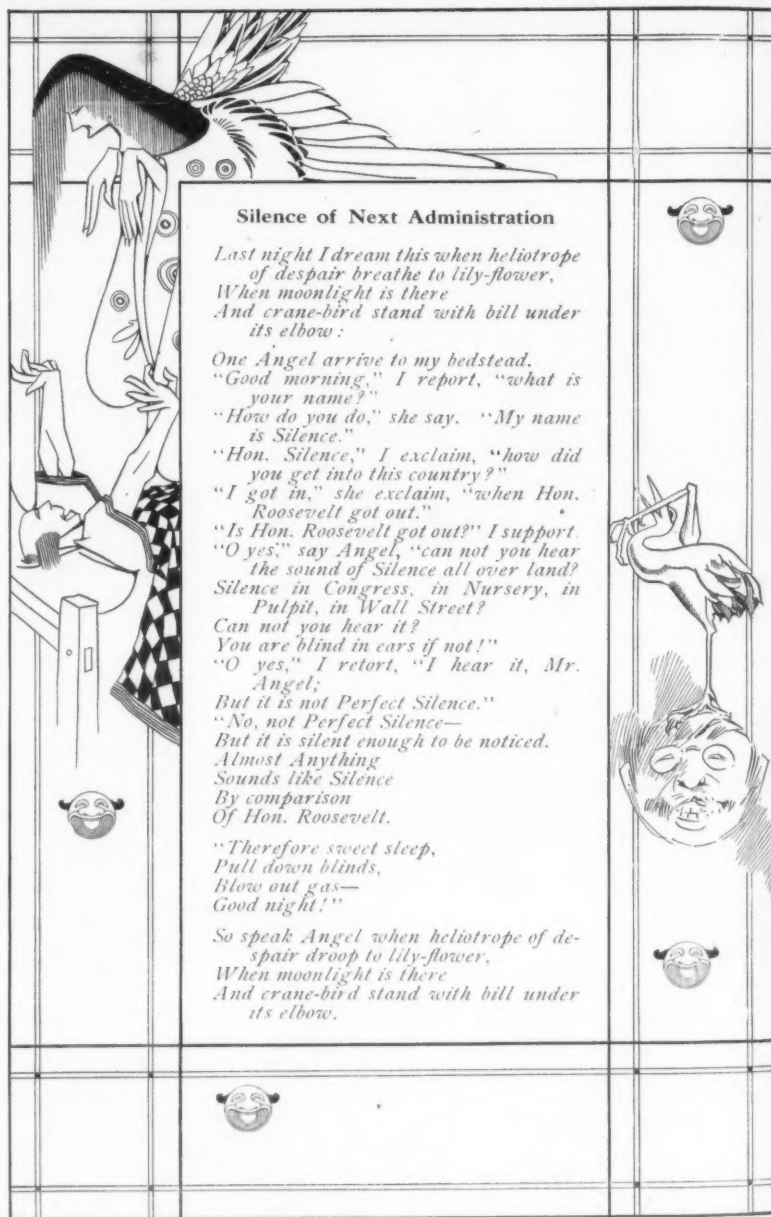 Silence of Next Administration
Last night I dream this when heliotrope
of despair breathe to lily-flower,
When moonlight is there
And crane-bird stand with bill under
its elbow:
One Angel arrive to my bedstead.
"Good morning," I report, "what is
your name?"
"How do you do," she say. "My name
is Silence."
"Hon. Silence," I exclaim, "how did
you get into this country?"
"I got in," she exclaim, "when Hon.
Roosevelt got out."
"Is Hon. Roosevelt got out?" I support.
"O yes," say Angel, "can not you hear
the sound of Silence all over land?
Silence in Congress, in Nursery, in
Pulpit, in Wall Street?
Can not you hear it?
You are blind in ears if not!"
"O yes," I retort, "I hear it, Mr.
Angel;
But it is not Perfect Silence."
"No, not Perfect Silence—
But it is silent enough to be noticed.
Almost Anything
Sounds like Silence
By comparison
Of Hon. Roosevelt.
"Therefore sweet sleep,
Pull down blinds,
Blow out gas—
Good night!"
So speak Angel when heliotrope of de-
spair droop to lily-flower,
When moonlight is there
And crane-bird stand with bill under
its elbow.